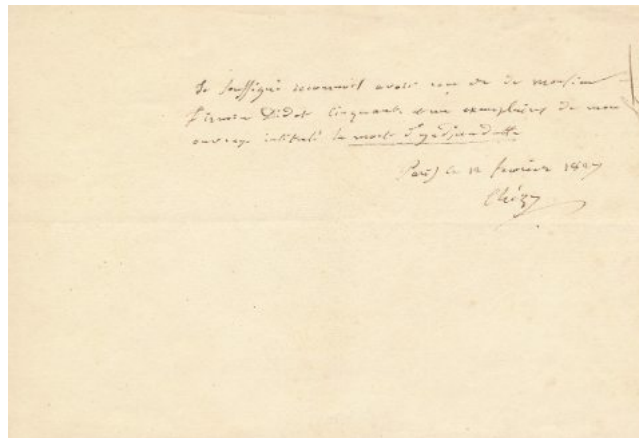 Je soussigné reconnois avoir reçu de monsieur
Firmin Didot Cinquante et un exemplaires de mon
ouvrage intitulé la mort d'yadjnadatta
Paris le 12 février 1827
Chézy